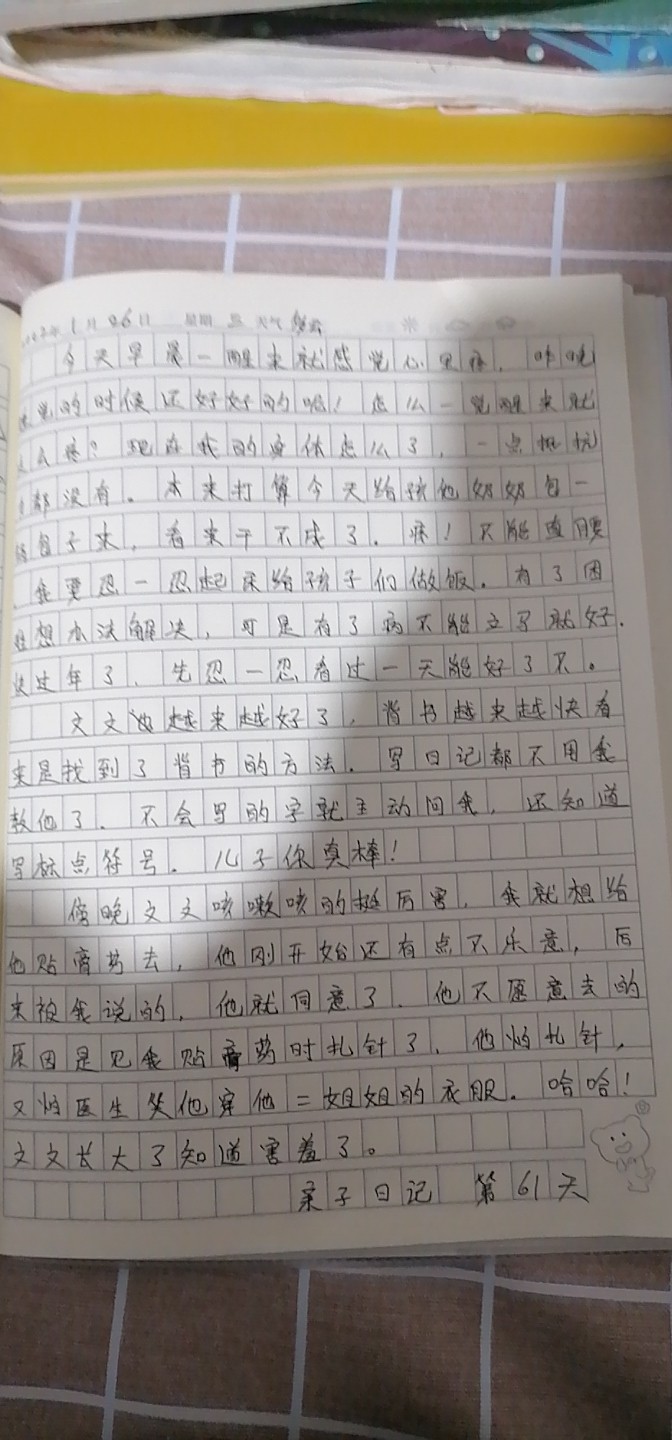 年1月26日 星期三 天气
今天早晨一醒来就感觉心里疼，昨晚
觉的时候还好好的呢！怎么一觉醒来就
么疼？现在我的身体怎么了，一点抵抗
都没有。本来打算今天给孩他奶奶包一
包子来，看来干不成了。疼！不能直腰
，我要忍一忍起床给孩子们做饭。有了困
想办法解决，可是有了病不能立写就好.
快过年了，先忍一忍看过一天能好了不。
文文也越来越好了，背书越来越快看
来是找到了背书的方法. 写日记都不用我
教他了. 不会写的字就主动问我，还知道
写标点符号. 儿子你真棒！
傍晚文文咳嗽咳的挺厉害，我就想给
他贴膏药去，他刚开始还有点不乐意，后
来被我说的，他就同意了. 他不愿意去的
原因是见我贴膏药时扎针了、他怕扎针，
又怕医生笑他穿他二姐姐的衣服. 哈哈！
文文长大了知道害羞了。
亲子日记 第61天